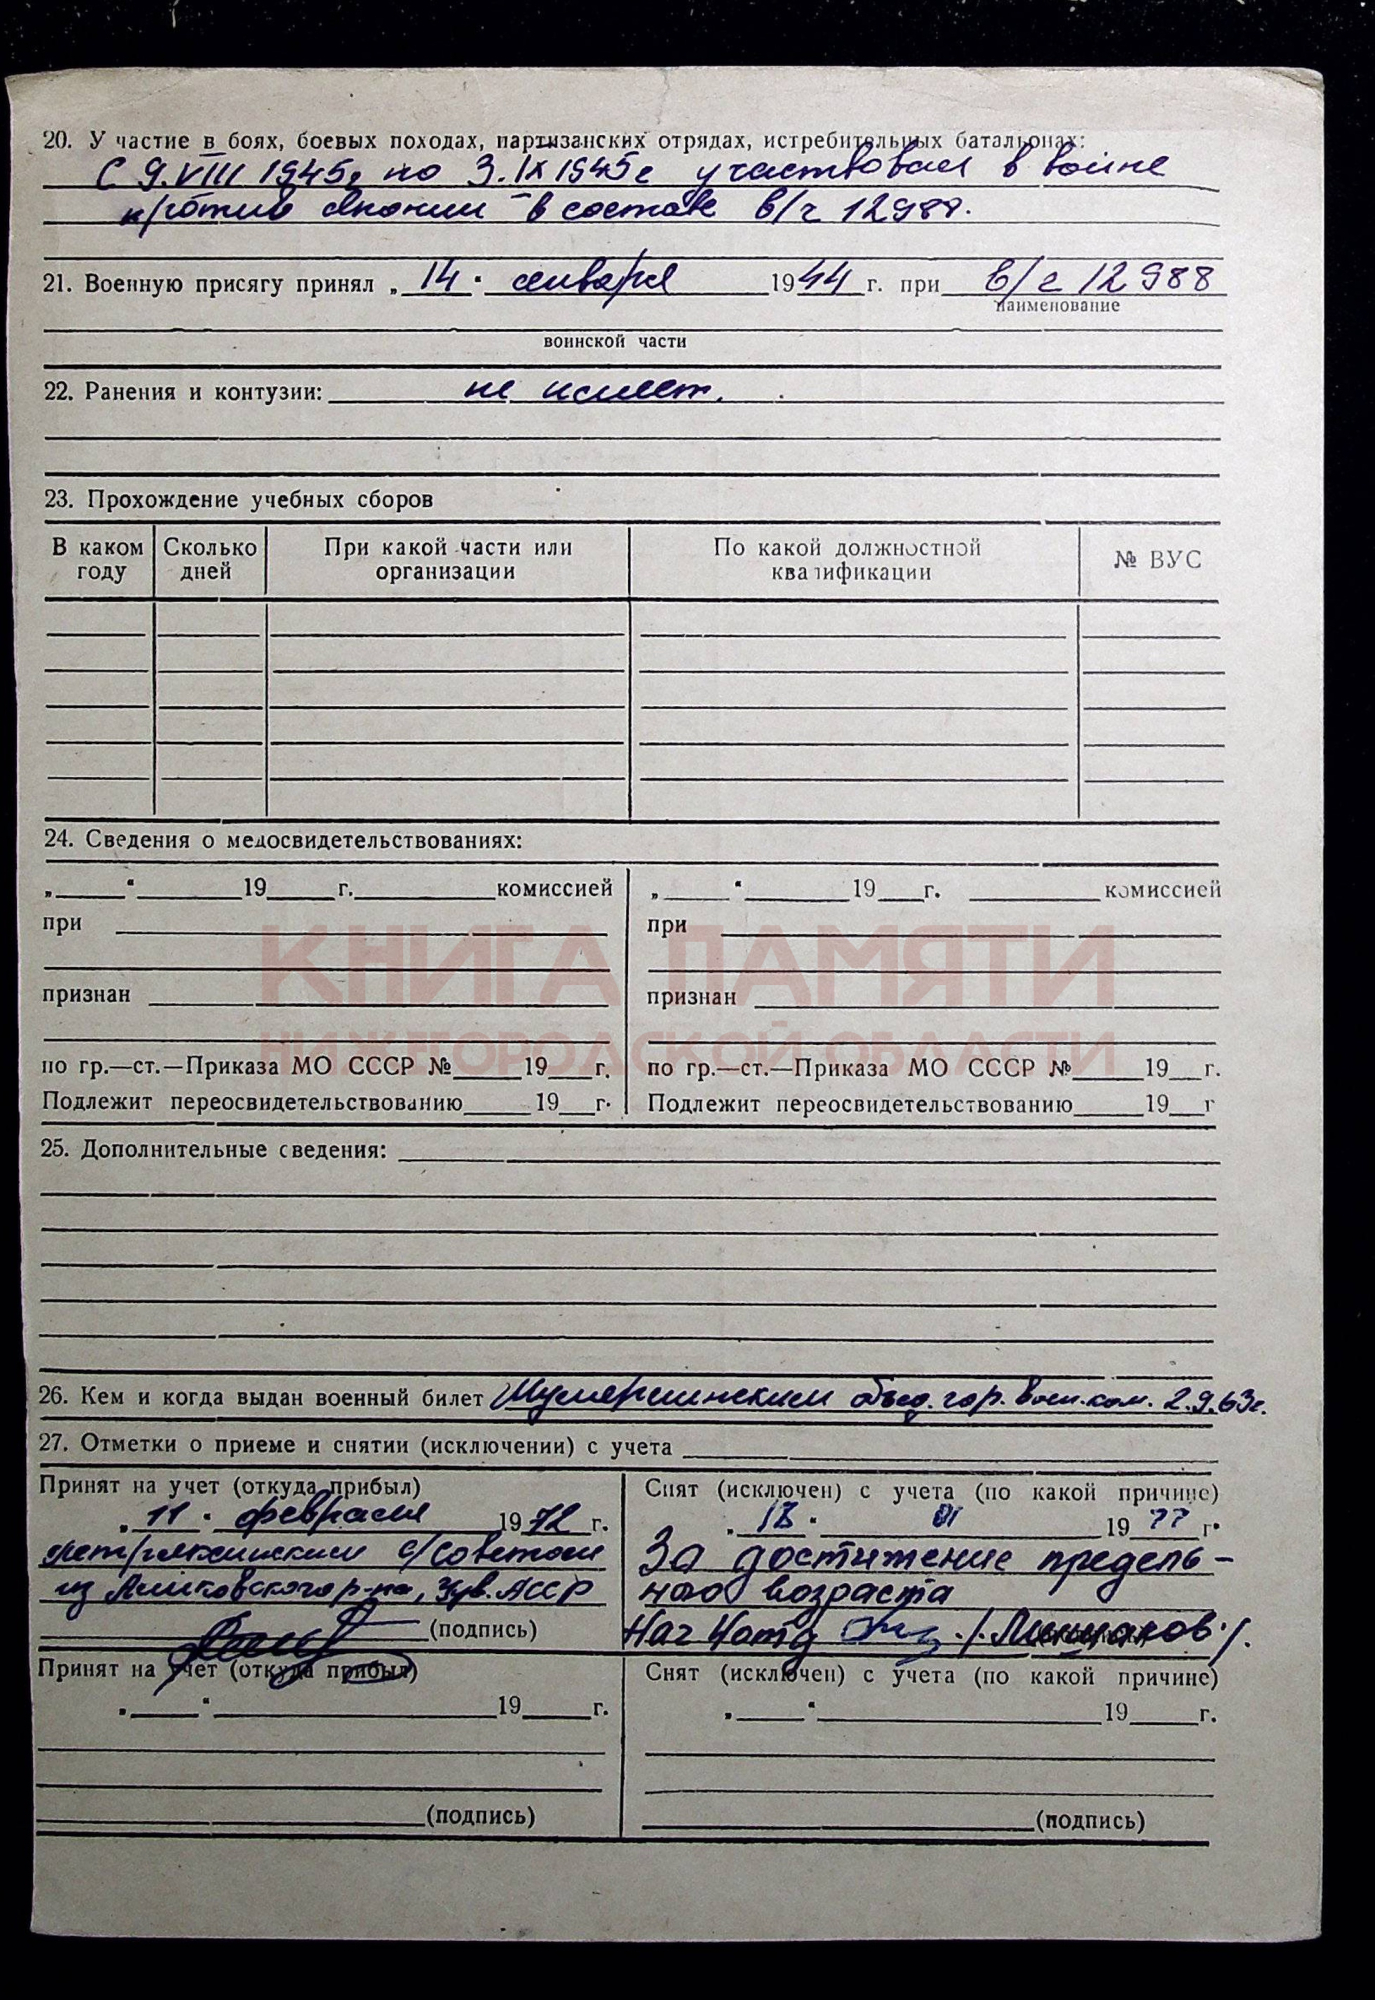 20. Участие в боях, боевых походах, партизанских отрядах, истребительных батальонах:
С 9.VIII 1945г по 3.IX 1945г участвовал в войне
против Японии – в составе в/ч 12988.
21. Военную присягу принял „14" января 1944 г. при в/ч 12988
наименование
воинской части
22. Ранения и контузии: не имеет.
23. Прохождение учебных сборов
В каком году
Сколько дней
При какой части или организации
По какой должностной квалификации
№ ВУС
24. Сведения о медосвидетельствованиях:
„ " 19 г. комиссией
при
признан
по гр.—ст.—Приказа МО СССР № 19 г.
Подлежит переосвидетельствованию 19 г.
„ " 19 г. комиссией
при
признан
по гр.—ст.—Приказа МО СССР № 19 г.
Подлежит переосвидетельствованию 19 г
КНИГА ПАМЯТИ
НИЖЕГОРОДСКОЙ ОБЛАСТИ
25. Дополнительные сведения:
26. Кем и когда выдан военный билет Шумерлинским объед. гор. воен.ком. 2.9.63г.
27. Отметки о приеме и снятии (исключении) с учета
Принят на учет (откуда прибыл)
„11" февраля 1972 г.
с/советом
из р-на, АССР
(подпись)
Снят (исключен) с учета (по какой причине)
„18" 01 1977 г.
За достижение предель-
ного возраста
Нач 4отд
Принят на учет (откуда прибыл)
„ " 19 г.
(подпись)
Снят (исключен) с учета (по какой причине)
„ " 19 г.
(подпись)